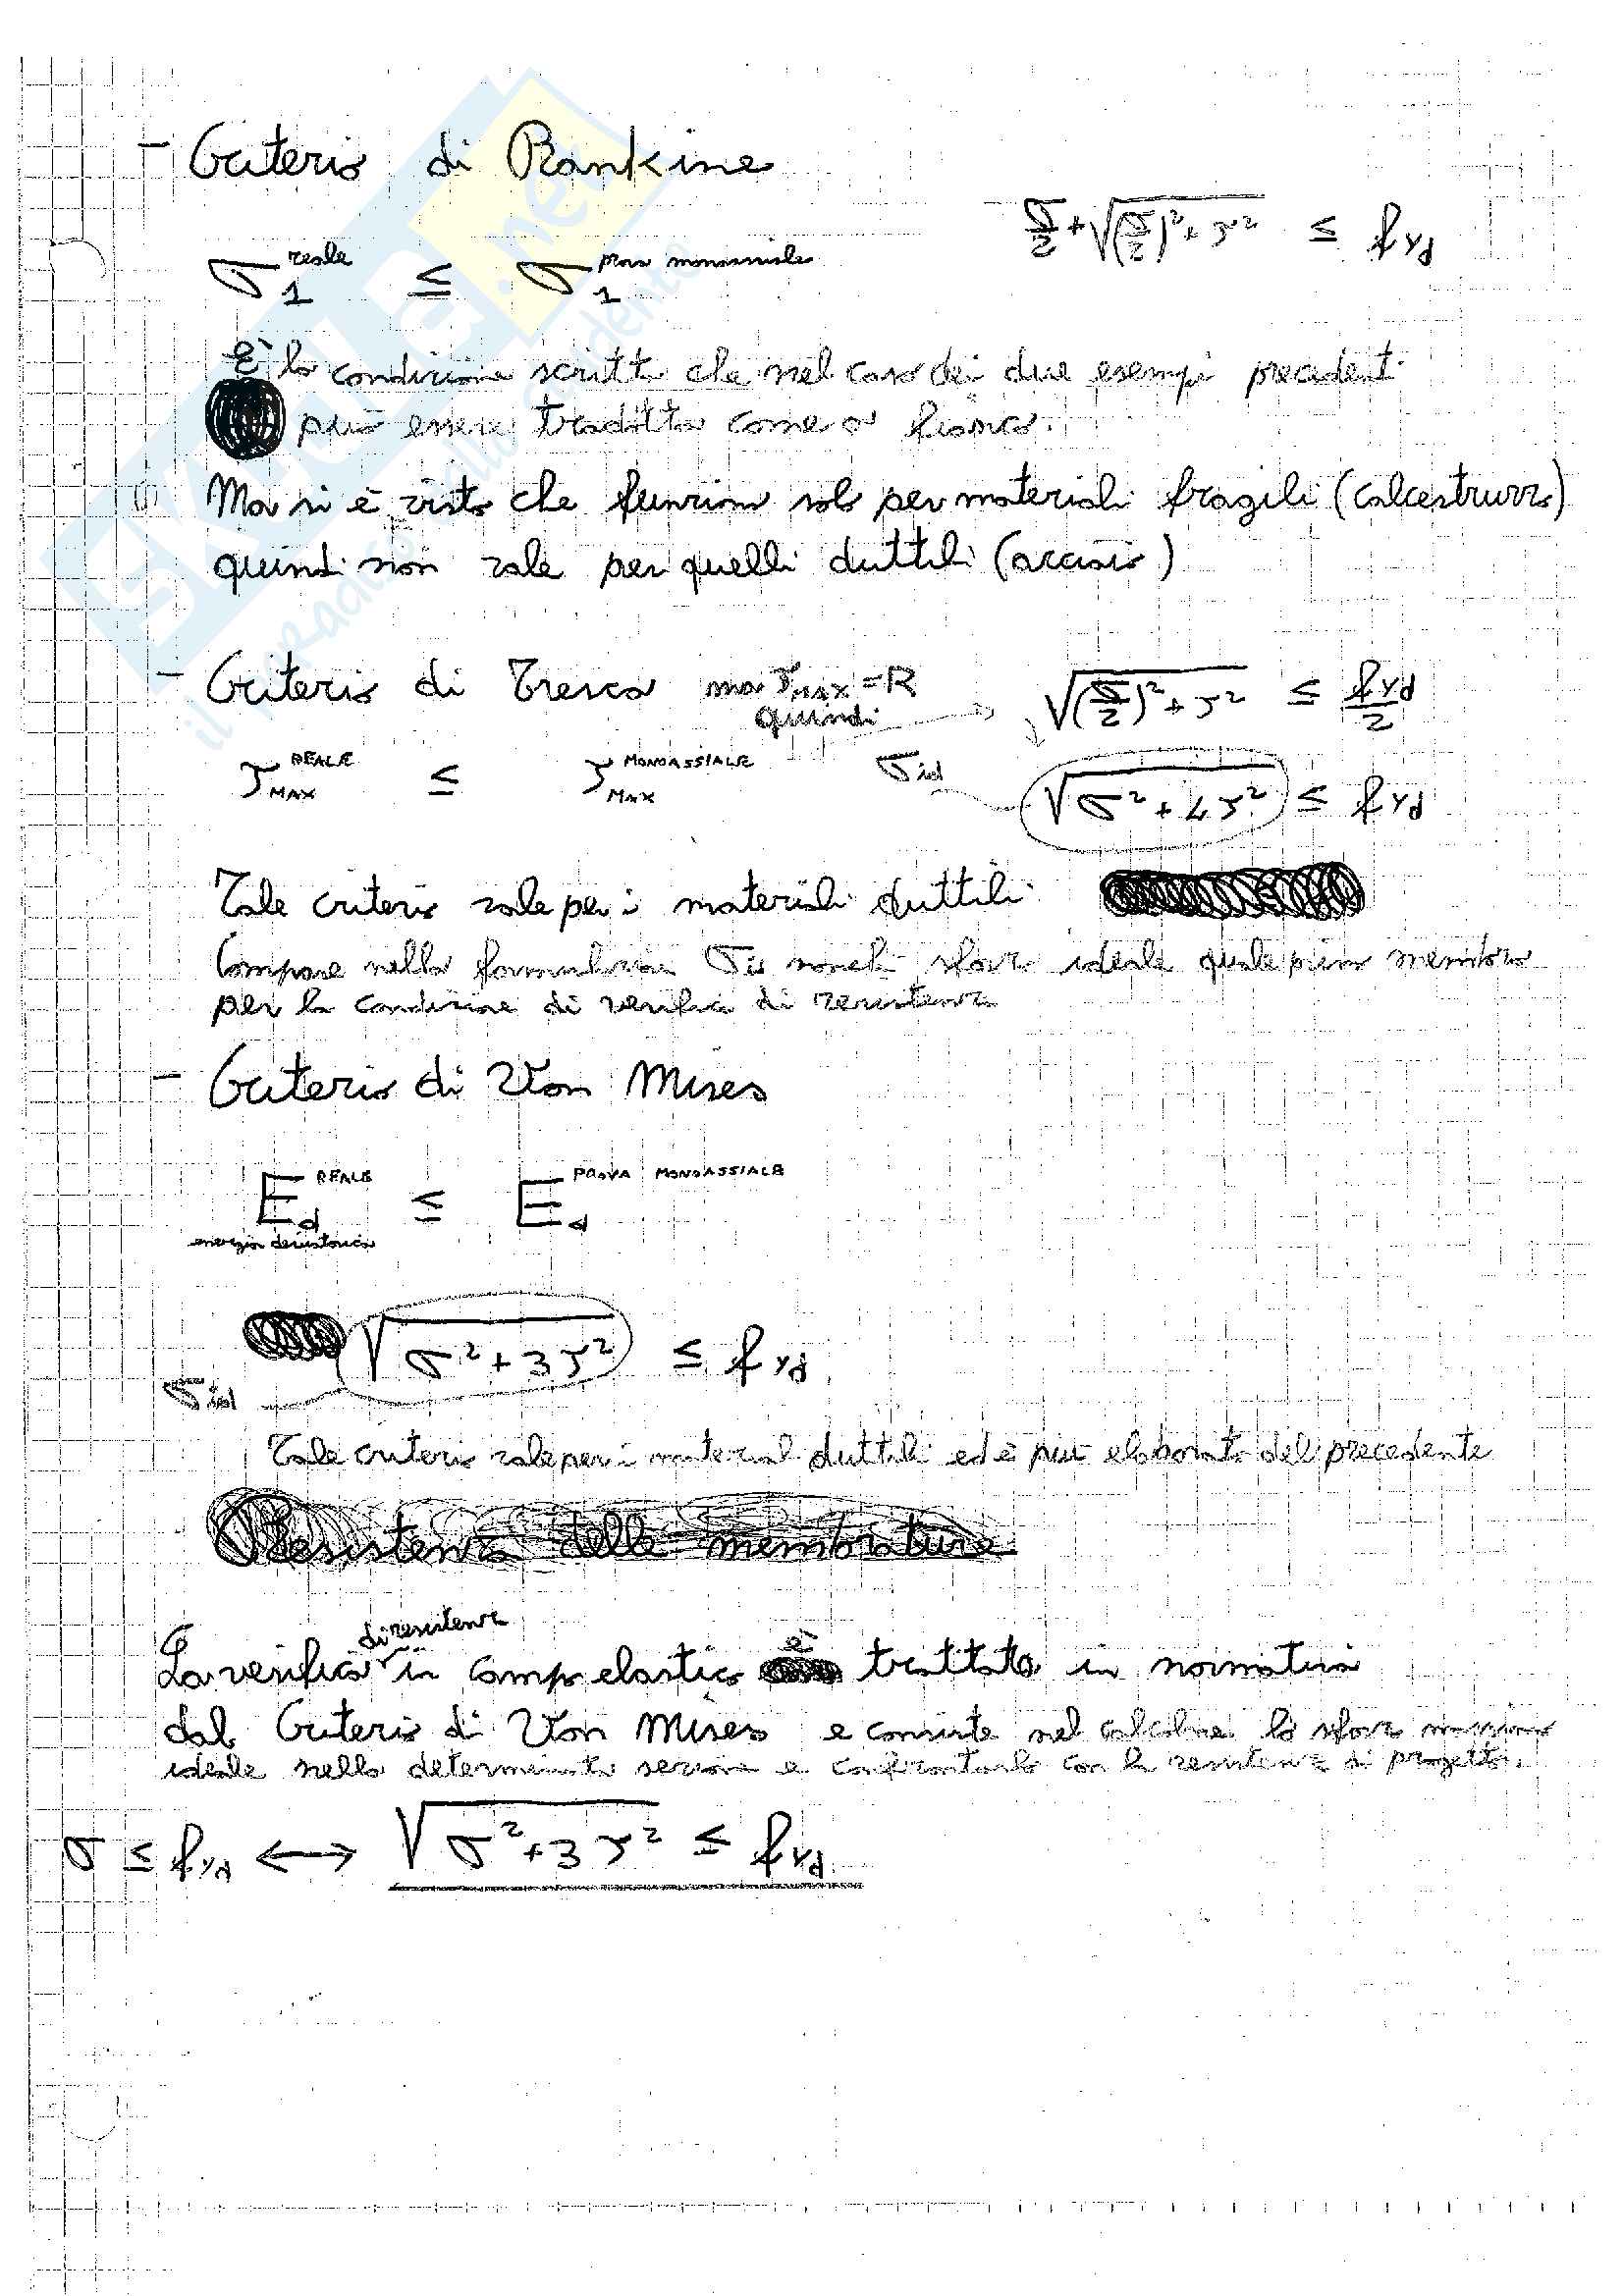 - Criterio di Rankine
σ/2 + √((σ/2)² + τ²) ≤ fyd
σ1 reale ≤ σ1 prova monoassiale
È la condizione scritta che nel caso dei due esempi precedenti
può essere tradotta come a fianco.
Ma si è visto che funziona solo per materiali fragili (calcestruzzo)
quindi non vale per quelli duttili (acciaio)
- Criterio di Tresca ma τMAX = R
quindi
√((σ/2)² + τ²) ≤ fyd/2
τMAX REALE ≤ τMAX MONOASSIALE
σid √(σ² + 4τ²) ≤ fyd
Tale criterio vale per i materiali duttili
Compare nella formulazione σid nonché sforzo ideale quale primo membro
per la condizione di verifica di resistenza
- Criterio di Von Mises
Ed REALE ≤ Ed PROVA MONOASSIALE
energia
√(σ² + 3τ²) ≤ fyd
σid
Tale criterio vale per i materiali duttili ed è più elaborato del precedente
Resistenza delle membrature
di resistenza
La verifica in campo elastico è trattata in normativa
dal Criterio di Von Mises e consiste nel calcolare lo sforzo massimo
ideale nella determinata sezione e confrontarlo con la resistenza di progetto.
σ ≤ fyd ↔ √(σ² + 3τ²) ≤ fyd